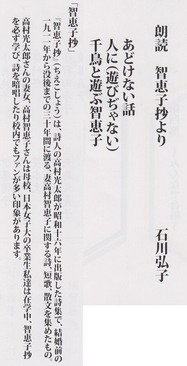 朗読　智恵子抄より
石川弘子
あどけない話
人に（遊びぢゃない）
千鳥と遊ぶ智恵子
「智恵子抄」
『智恵子抄』（ちえこしょう）は、詩人の高村光太郎が昭和十六年に出版した詩集で、結婚前の
一九一二年から没後までの三十年間に渡る、妻高村智恵子に関する詩、短歌、散文を集めたもの。
高村光太郎さんの妻、高村智恵子さんは母校、日本女子大の卒業生、私達は在学中、智恵子抄
を必ず学び、詩を暗唱したり校内でもファンが多い印象があります。